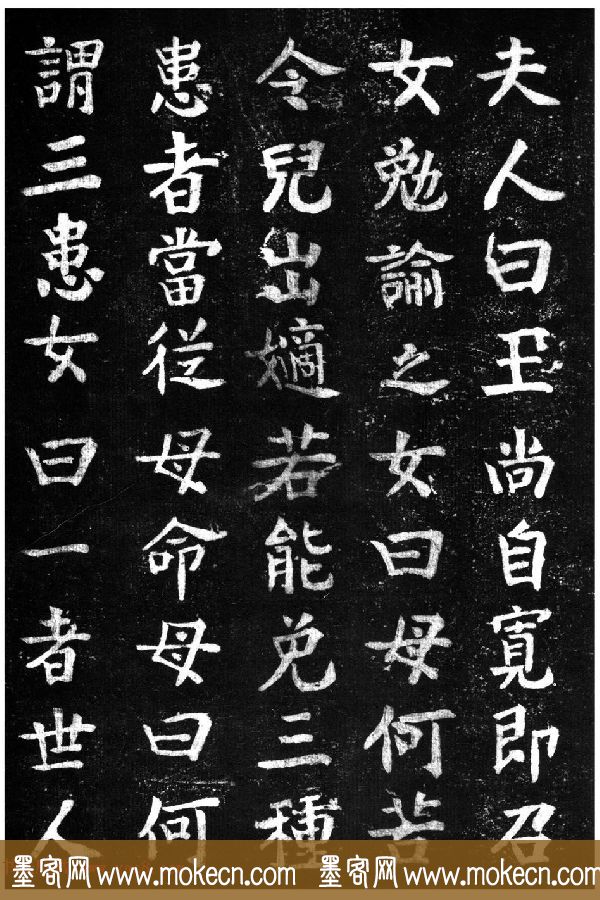 夫人曰王尚自寬即召
女勉諭之女曰母何苦
令兒出嫡若能免三種
患者當從母命母曰何
謂三患女曰一者世人
墨客网 www.mokecn.com 墨客网 www.mokecn.com